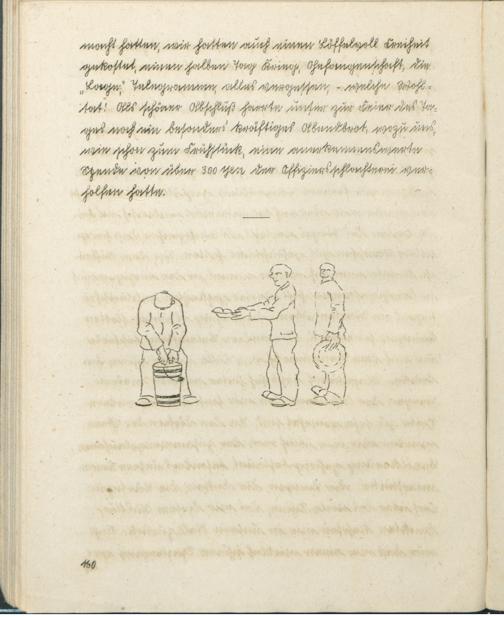 macht hatten, wir hatten auch einen Löffelvoll Freiheit
gekostet, einen halben Tag Krieg, Gefangenschaft, die
„Lage“, Telegramme, alles vergessen, – welche Wohl-
tat! Als schöner Abschluß harrte unser zur Feier des Ta-
ges noch ein besonders kräftiges Abendbrot, wozu uns,
wie schon zum Frühstück, eine anerkennenswerte
Spende von über 300 Yen der Offiziersschlachterei ver-
holfen hatte.
160